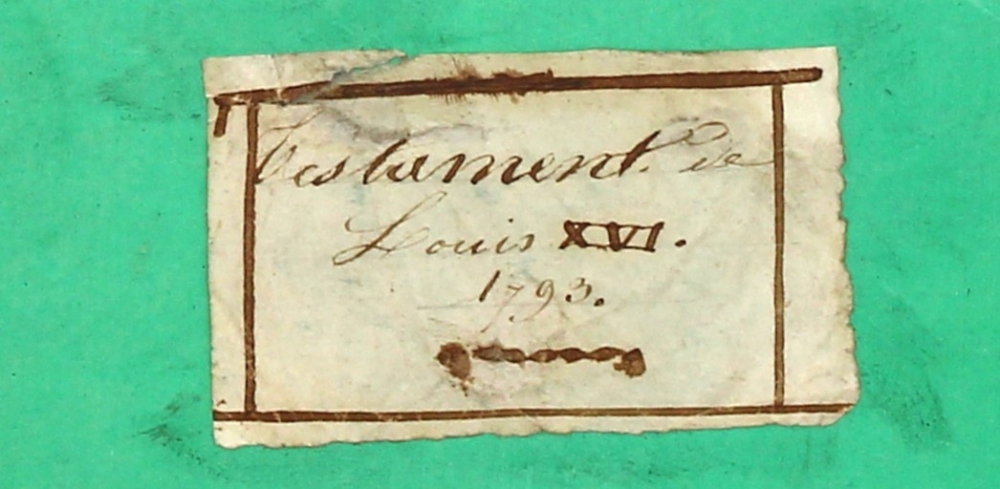 Testament de
Louis XVI.
1793.